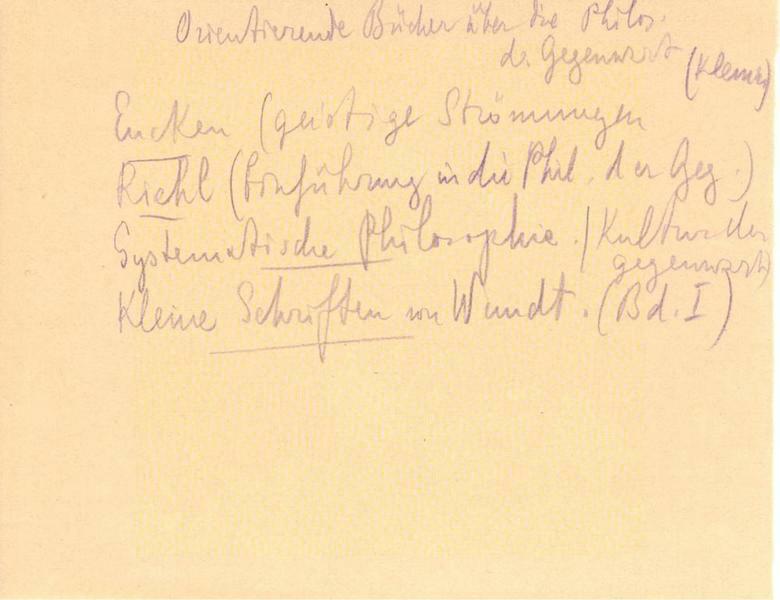 Orientierende Bücher über die Philos.
d. Gegenwart
Eucken (geistige Strömungen
Riehl (Einführung in die Phil. der Geg.)
Systematische Philosophie. (Kultur der
gegenwart)
Kleine Schriften von Wundt. (Bd. I)